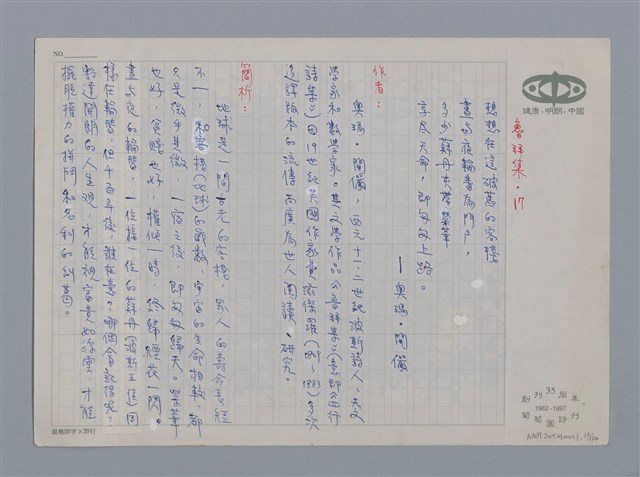 健康・明朗・中國
魯拜集・17
想想在這破舊的客棧
晝與夜輪番為門戶，
多少蘇丹夫榮榮華
享尽天命，即匆匆上路。
——奧瑪・開儼
作者：
奧瑪・開儼，西元十一、二世紀波斯詩人、天文
學家和數學家。其文學作品《魯拜集》（意即四行
詩集）由19世紀英國作家費滋傑羅（1809～1883）多次
迻譯版本的流傳而廣為世人閱讀、研究。
簡析：
地球是一間古老的客棧，眾人的壽命長短
不一，和客棧（地球）的歲數、宇宙的生命相較，都
只是微乎其微，一宿之後，即匆匆歸天。榮華
也好，貧賤也好，權傾一時，終歸煙花一閃。
晝與夜的輪替，一位接一位的蘇丹（波斯王侯）同
樣在輪替，但千百年後，誰在意？哪個會記得呢？
豁達開朗的人生觀，才能視富貴如浮雲，才能
擺脫權力的拼鬥和名利的糾葛。
NO.
規格20字×20行
創刊35周年
1962-1997
葡萄園詩刊